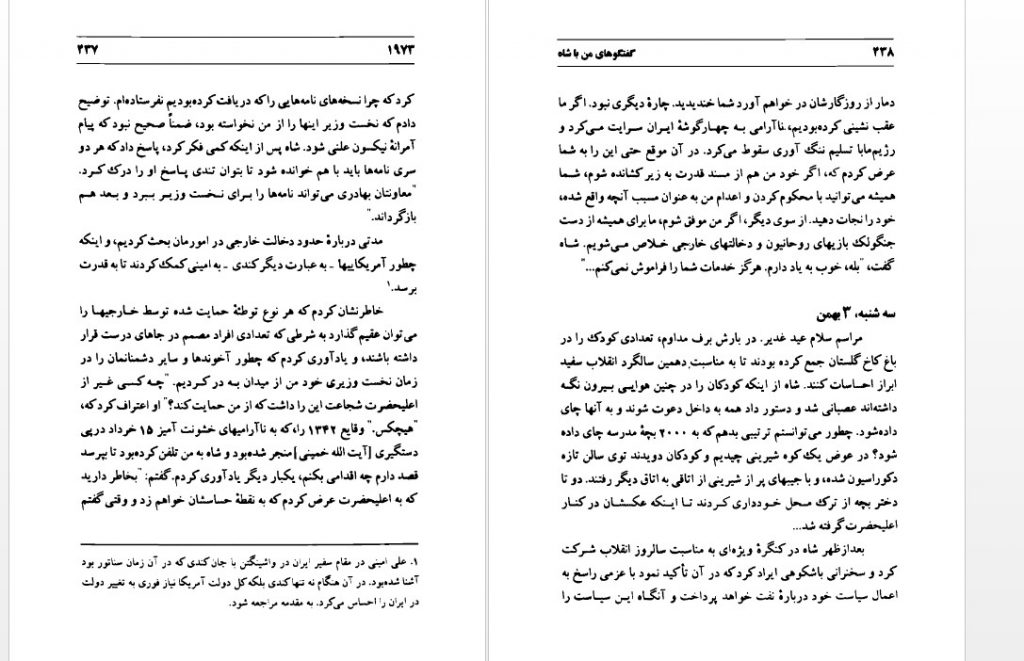 ۱۹۷۳ ۴۳۷
کرد که چرا نسخه‌های نامه‌هایی را که دریافت کرده‌بودیم نفرستاده‌ام. توضیح
دادم که نخست وزیر اینها را از من نخواسته بود، ضمناً صحیح نبود که پیام
آمرانهٔ نیکسون علنی شود. شاه پس از اینکه کمی فکر کرد، پاسخ داد که هر دو
سری نامه‌ها باید با هم خوانده شود تا بتوان تندی پاسخ او را درک کرد.
"معاونتان بهادری می‌تواند نامه‌ها را برای نخست وزیر ببرد و بعد هم
بازگرداند."
مدتی دربارهٔ حدود دخالت خارجی در امورمان بحث کردیم، و اینکه
چطور آمریکاییها ـ به عبارت دیگر کندی ـ به امینی کمک کردند تا به قدرت
برسد.۱
خاطرنشان کردم که هر نوع توطئهٔ حمایت شده توسط خارجیها را
می‌توان عقیم گذارد به شرطی که تعدادی افراد مصمم در جاهای درست قرار
داشته باشند، و یادآوری کردم که چطور آخوندها و سایر دشمنانمان را در
زمان نخست وزیری خود من از میدان به در کردیم. "چه کسی غیر از
اعلیحضرت شجاعت این را داشت که از من حمایت کند؟" او اعتراف کرد که،
"هیچکس." وقایع ۱۳۴۲ را، که به ناآرامیهای خشونت آمیز ۱۵ خرداد در پی
دستگیری [آیت الله خمینی] منجر شده‌بود و شاه به من تلفن کرده‌بود تا بپرسد
قصد دارم چه اقدامی بکنم، یکبار دیگر یادآوری کردم. گفتم: "بخاطر دارید
که به اعلیحضرت عرض کردم که به نقطهٔ حساسشان خواهم زد و وقتی گفتم
۱. علی امینی در مقام سفیر ایران در واشینگتن با جان کندی که در آن زمان سناتور بود
آشنا شده‌بود. در آن هنگام نه تنها کندی بلکه کل دولت آمریکا نیاز فوری به تغییر دولت
در ایران را احساس می‌کرد. به مقدمه مراجعه شود.
۴۳۸ گفتگوهای من با شاه
دمار از روزگارشان در خواهم آورد شما خندیدید. چارهٔ دیگری نبود. اگر ما
عقب نشینی کرده‌بودیم، ناآرامی به چهارگوشهٔ ایران سرایت می‌کرد و
رژیم‌ما با تسلیم ننگ آوری سقوط می‌کرد. در آن موقع حتی این را به شما
عرض کردم که، اگر خود من هم از مسند قدرت به زیر کشانده شوم، شما
همیشه می‌توانید با محکوم کردن و اعدام من به عنوان مسبب آنچه واقع شده،
خود را نجات دهید. از سوی دیگر، اگر من موفق شوم، ما برای همیشه از دست
جنگولک بازیهای روحانیون و دخالتهای خارجی خلاص می‌شویم. شاه
گفت، "بله، خوب به یاد دارم. هرگز خدمات شما را فراموش نمی‌کنم..."
سه شنبه، ۳ بهمن
مراسم سلام عید غدیر. در بارش برف مداوم، تعدادی کودک را در
باغ کاخ گلستان جمع کرده بودند تا به مناسبت دهمین سالگرد انقلاب سفید
ابراز احساسات کنند. شاه از اینکه کودکان را در چنین هوایی بیرون نگه
داشته‌اند عصبانی شد و دستور داد همه به داخل دعوت شوند و به آنها چای
داده‌شود. چطور می‌توانستم ترتیبی بدهم که به ۲۰۰۰ بچهٔ مدرسه چای داده
شود؟ در عوض یک کوه شیرینی چیدیم و کودکان دویدند توی سالن تازه
دکوراسیون شده، و با جیبهای پر از شیرینی از اتاقی به اتاق دیگر رفتند. دو تا
دختر بچه از ترک محل خودداری کردند تا اینکه عکسشان در کنار
اعلیحضرت گرفته شد...
بعدازظهر شاه در کنگرهٔ ویژه‌ای به مناسبت سالروز انقلاب شرکت
کرد و سخنرانی باشکوهی ایراد کرد که در آن تأکید نمود با عزمی راسخ به
اعمال سیاست خود دربارهٔ نفت خواهد پرداخت و آنگاه این سیاست را